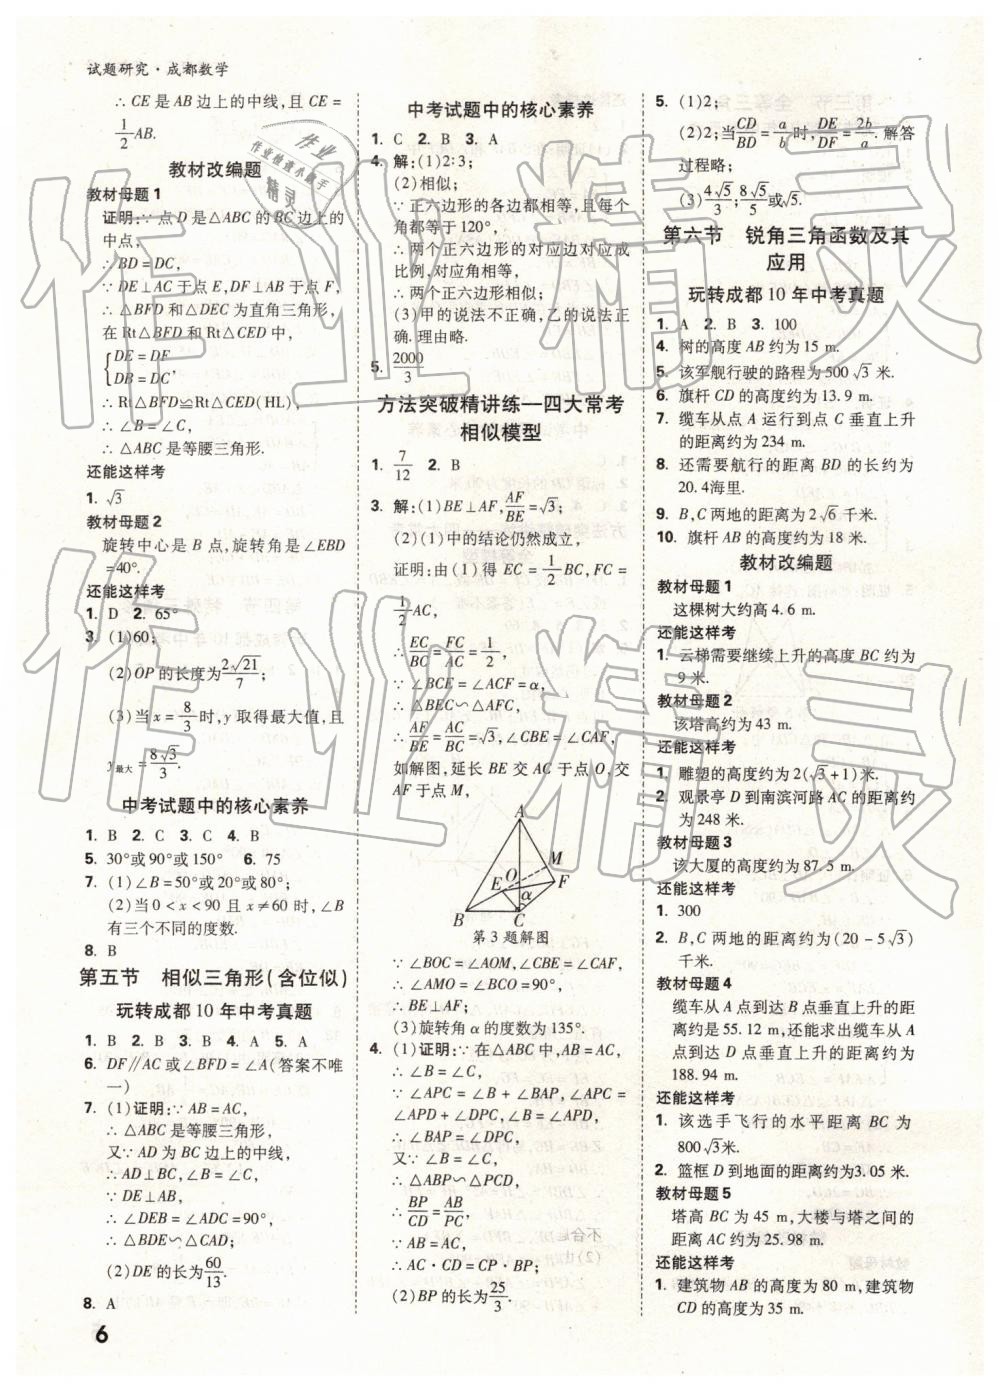 试题研究·成都数学
∴CE 是 AB 边上的中线,且 CE =
1/2 AB.
教材改编题
教材母题 1
证明:∵点 D 是△ABC 的 BC 边上的
中点,
∴BD = DC,
∵DE⊥AC 于点 E,DF⊥AB 于点 F,
∴△BFD 和△DEC 为直角三角形,
在 Rt△BFD 和 Rt△CED 中,
{DE = DF
DB = DC,
∴Rt△BFD≌Rt△CED(HL),
∴∠B = ∠C,
∴△ABC 是等腰三角形.
还能这样考
1. √3
教材母题 2
旋转中心是 B 点,旋转角是∠EBD
=40°.
还能这样考
1. D 2. 65°
3. (1)60;
(2)OP 的长度为 2√21/7;
(3)当 x = 8/3 时,y 取得最大值,且
y最大 = 8√3/3.
中考试题中的核心素养
1. B 2. C 3. C 4. B
5. 30°或 90°或 150° 6. 75
7. (1)∠B = 50°或 20°或 80°;
(2)当 0 < x < 90 且 x≠60 时,∠B
有三个不同的度数.
8. B
第五节 相似三角形(含位似)
玩转成都 10 年中考真题
1. B 2. B 3. B 4. A 5. A
6. DF∥AC 或∠BFD = ∠A(答案不唯
一)
7. (1)证明:∵AB = AC,
∴△ABC 是等腰三角形,
又∵AD 为 BC 边上的中线,
∴AD⊥BC,∠B = ∠C,
∵DE⊥AB,
∴∠DEB = ∠ADC = 90°,
∴△BDE∽△CAD;
(2)DE 的长为 60/13.
8. A
6
中考试题中的核心素养
1. C 2. B 3. A
4. 解:(1)2:3;
(2)相似;
∵正六边形的各边都相等,且每个
角都等于 120°,
∴两个正六边形的对应边对应成
比例,对应角相等,
∴两个正六边形相似;
(3)甲的说法不正确,乙的说法正
确.理由略.
5. 2000/3
方法突破精讲练—四大常考
相似模型
1. 7/12 2. B
3. 解:(1)BE⊥AF,AF/BE = √3;
(2)(1)中的结论仍然成立,
证明:由(1)得 EC = 1/2 BC,FC =
1/2 AC,
∴EC/BC = FC/AC = 1/2,
∵∠BCE = ∠ACF = α,
∴△BEC∽△AFC,
∴AF/BE = AC/BC = √3,∠CBE = ∠CAF,
如解图,延长 BE 交 AC 于点 O,交
AF 于点 M,
A
M
O
E
F
α
B
C
第 3 题解图
∵∠BOC = ∠AOM,∠CBE = ∠CAF,
∴∠AMO = ∠BCO = 90°,
∴BE⊥AF;
(3)旋转角 α 的度数为 135°.
4. (1)证明:∵在△ABC 中,AB = AC,
∴∠B = ∠C,
∵∠APC = ∠B + ∠BAP,∠APC =
∠APD + ∠DPC,∠B = ∠APD,
∴∠BAP = ∠DPC,
又∵∠B = ∠C,
∴△ABP∽△PCD,
∴BP/CD = AB/PC,
∵AB = AC,
∴AC·CD = CP·BP;
(2)BP 的长为 25/3.
5. (1)2;
(2)2;当 CD/BD = a/b 时,DE/DF = 2b/a.解答
过程略;
(3)4√5/3;8√5/5 或√5.
第六节 锐角三角函数及其
应用
玩转成都 10 年中考真题
1. A 2. B 3. 100
4. 树的高度 AB 约为 15 m.
5. 该军舰行驶的路程为 500√3 米.
6. 旗杆 CD 的高度约为 13.9 m.
7. 缆车从点 A 运行到点 C 垂直上升
的距离约为 234 m.
8. 还需要航行的距离 BD 的长约为
20.4海里.
9. B,C 两地的距离为 2√6 千米.
10. 旗杆 AB 的高度约为 18 米.
教材改编题
教材母题 1
这棵树大约高 4.6 m.
还能这样考
1. 云梯需要继续上升的高度 BC 约为
9 米.
教材母题 2
该塔高约为 43 m.
还能这样考
1. 雕塑的高度约为 2(√3+1)米.
2. 观景亭 D 到南滨河路 AC 的距离约
为 248 米.
教材母题 3
该大厦的高度约为 87.5 m.
还能这样考
1. 300
2. B,C 两地的距离约为(20-5√3)
千米.
教材母题 4
缆车从 A 点到达 B 点垂直上升的距
离约是 55.12 m,还能求出缆车从 A
点到达 D 点垂直上升的距离约为
188.94 m.
还能这样考
1. 该选手飞行的水平距离 BC 为
800√3米.
2. 篮框 D 到地面的距离约为3.05 米.
教材母题 5
塔高 BC 为 45 m,大楼与塔之间的
距离 AC 约为 25.98 m.
还能这样考
1. 建筑物 AB 的高度为 80 m,建筑物
CD 的高度为 35 m.
作业精灵
作业精灵
作业
作业检查小助手
精灵